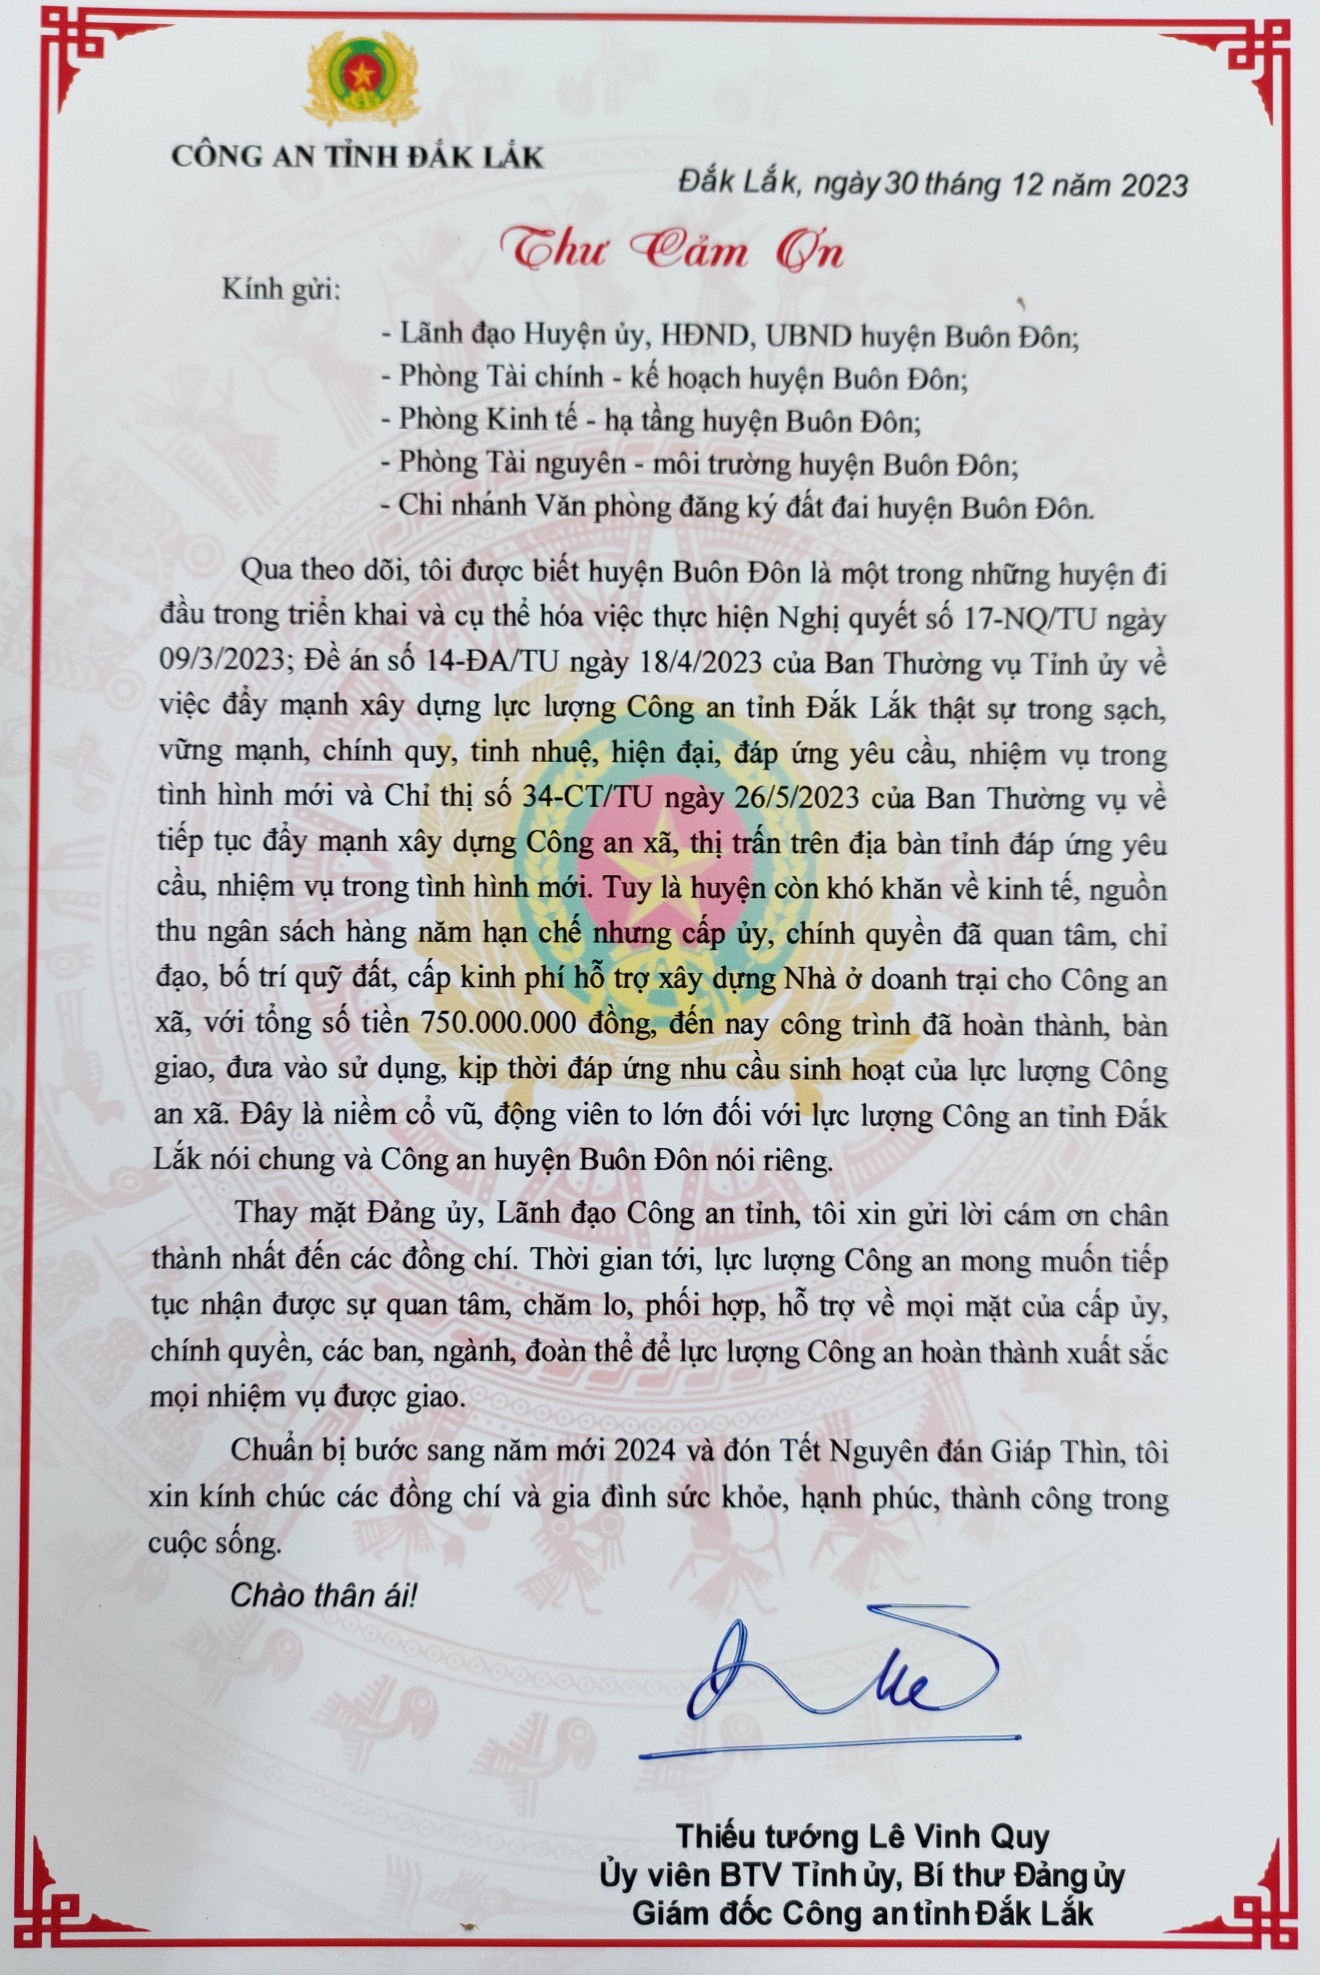 CÔNG AN TỈNH ĐẮK LẮK
Đắk Lắk, ngày 30 tháng 12 năm 2023
Thư Cảm Ơn
Kính gửi:
- Lãnh đạo Huyện ủy, HĐND, UBND huyện Buôn Đôn;
- Phòng Tài chính - kế hoạch huyện Buôn Đôn;
- Phòng Kinh tế - hạ tầng huyện Buôn Đôn;
- Phòng Tài nguyên - môi trường huyện Buôn Đôn;
- Chi nhánh Văn phòng đăng ký đất đai huyện Buôn Đôn.
Qua theo dõi, tôi được biết huyện Buôn Đôn là một trong những huyện đi
đầu trong triển khai và cụ thể hóa việc thực hiện Nghị quyết số 17-NQ/TU ngày
09/3/2023; Đề án số 14-ĐA/TU ngày 18/4/2023 của Ban Thường vụ Tỉnh ủy về
việc đẩy mạnh xây dựng lực lượng Công an tỉnh Đắk Lắk thật sự trong sạch,
vững mạnh, chính quy, tinh nhuệ, hiện đại, đáp ứng yêu cầu, nhiệm vụ trong
tình hình mới và Chỉ thị số 34-CT/TU ngày 26/5/2023 của Ban Thường vụ về
tiếp tục đẩy mạnh xây dựng Công an xã, thị trấn trên địa bàn tỉnh đáp ứng yêu
cầu, nhiệm vụ trong tình hình mới. Tuy là huyện còn khó khăn về kinh tế, nguồn
thu ngân sách hàng năm hạn chế nhưng cấp ủy, chính quyền đã quan tâm, chỉ
đạo, bố trí quỹ đất, cấp kinh phí hỗ trợ xây dựng Nhà ở doanh trại cho Công an
xã, với tổng số tiền 750.000.000 đồng, đến nay công trình đã hoàn thành, bàn
giao, đưa vào sử dụng, kịp thời đáp ứng nhu cầu sinh hoạt của lực lượng Công
an xã. Đây là niềm cổ vũ, động viên to lớn đối với lực lượng Công an tỉnh Đắk
Lắk nói chung và Công an huyện Buôn Đôn nói riêng.
Thay mặt Đảng ủy, Lãnh đạo Công an tỉnh, tôi xin gửi lời cám ơn chân
thành nhất đến các đồng chí. Thời gian tới, lực lượng Công an mong muốn tiếp
tục nhận được sự quan tâm, chăm lo, phối hợp, hỗ trợ về mọi mặt của cấp ủy,
chính quyền, các ban, ngành, đoàn thể để lực lượng Công an hoàn thành xuất sắc
mọi nhiệm vụ được giao.
Chuẩn bị bước sang năm mới 2024 và đón Tết Nguyên đán Giáp Thìn, tôi
xin kính chúc các đồng chí và gia đình sức khỏe, hạnh phúc, thành công trong
cuộc sống.
Chào thân ái!
Thiếu tướng Lê Vinh Quy
Ủy viên BTV Tỉnh ủy, Bí thư Đảng ủy
Giám đốc Công an tỉnh Đắk Lắk